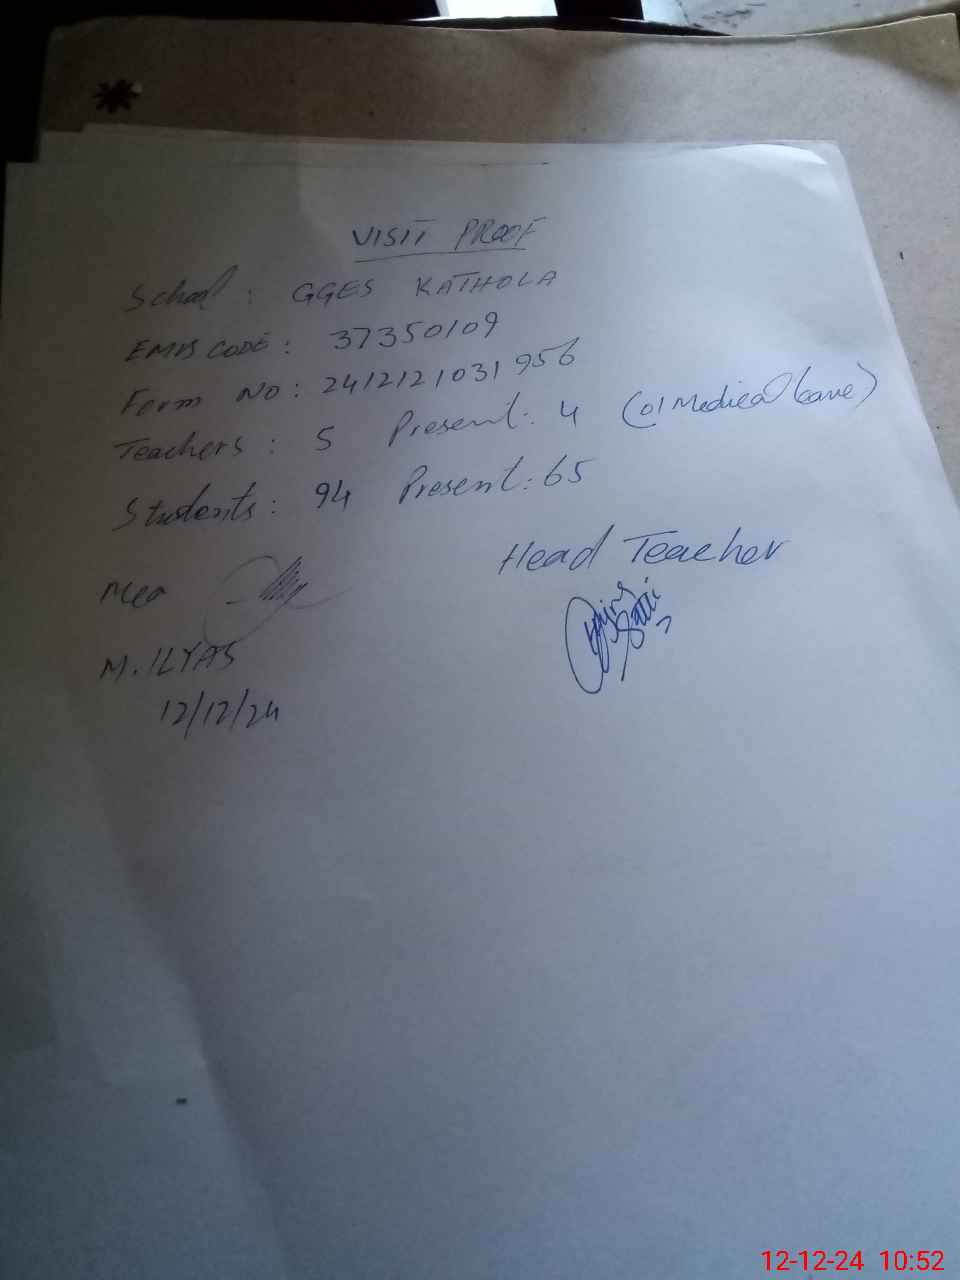 VISIT PROOF
School : GGES KATHOLA
EMIS CODE : 37350109
Form No : 2412121031956
Teachers : 5 Present : 4 (01 Medical leave)
Students : 94 Present : 65
Head Teacher
Mea
M. ILYAS
12/12/24
12-12-24 10:52